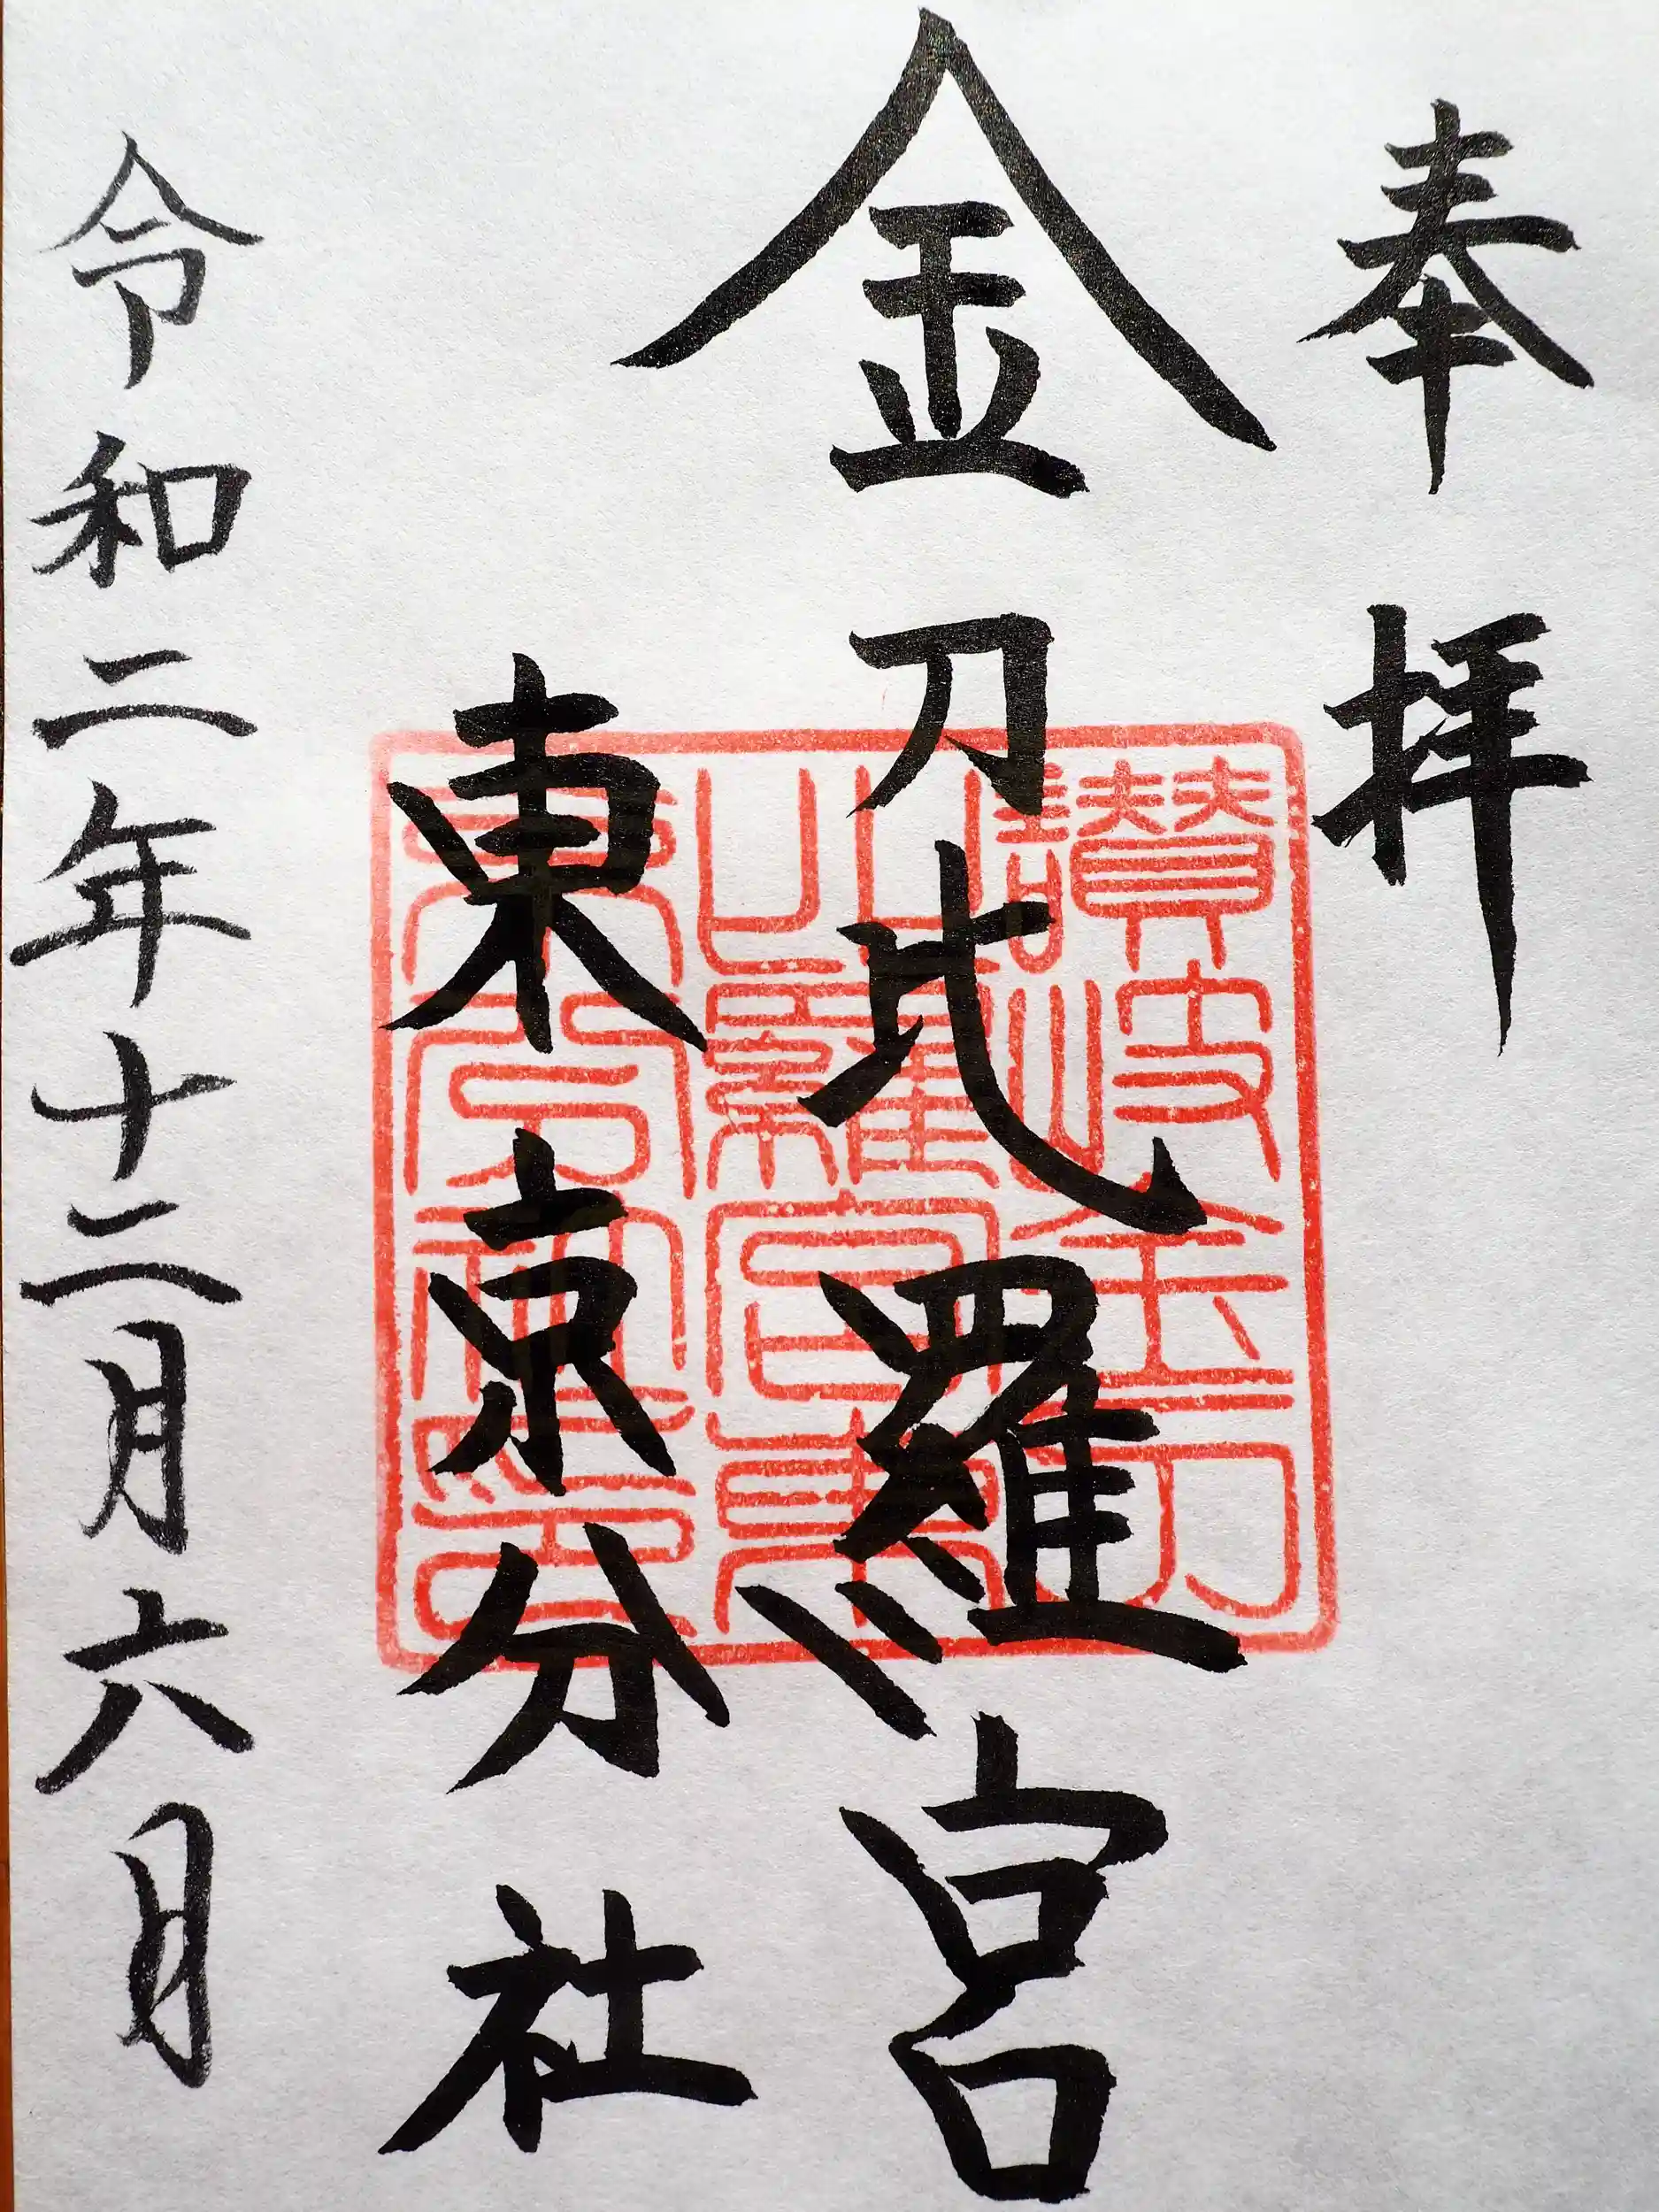 奉拝
金刀比羅宮
東京分社
令和二年十二月六月
讃岐金刀
比羅宮東
京分社印